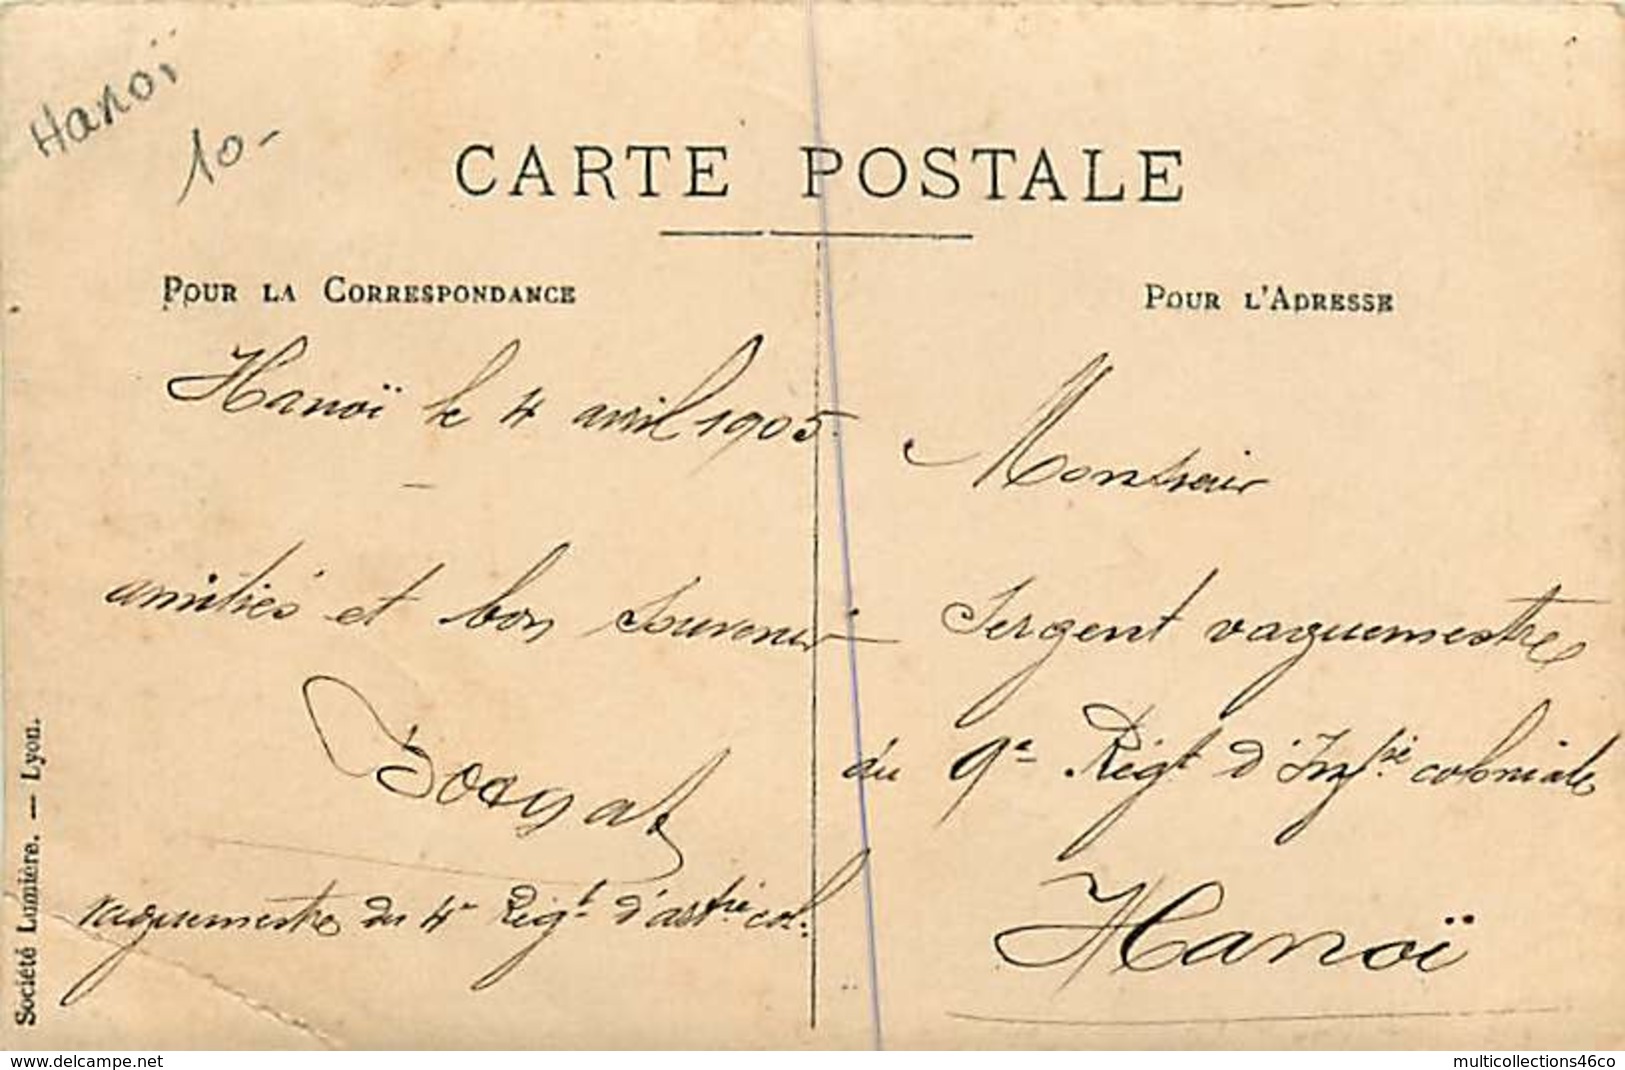 Hanoï
10-
CARTE POSTALE
POUR LA CORRESPONDANCE
POUR L'ADRESSE
Hanoï le 4 avril 1905.
amitiés et bon souvenir
vaguemestre du 4e Régt d'artrie col.
Monsieur
Sergent vaguemestre
du 9e Régt d'Infrie coloniale
Hanoï
Société Lumière. — Lyon.
www.delcampe.net
multicollections46co